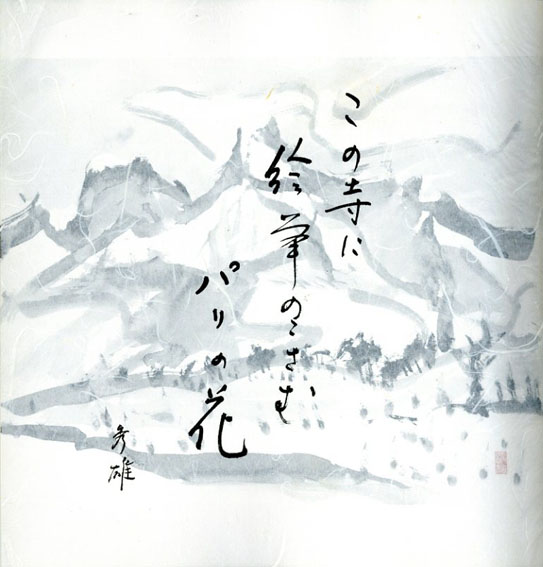 この寺に
絵筆のこさむ
パリの花
秀雄